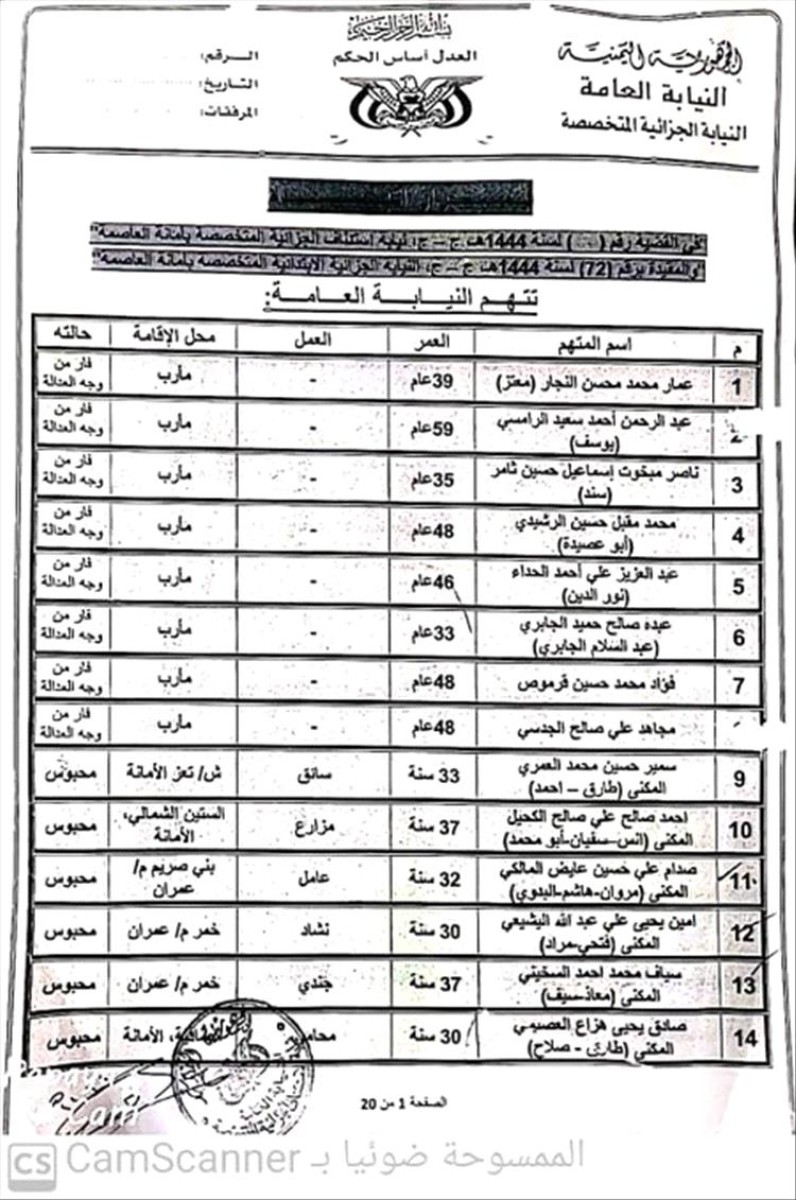 بسم الله الرحمن الرحيم
الجمهورية اليمنية
النيابة العامة
النيابة الجزائية المتخصصة
العدل أساس الحكم
الـرقـم:
التـاريخ:
المرفقات:
في القضية رقم ( ) لسنة 1444هـ ج – ج، نيابة استئناف الجزائية المتخصصة بأمانة العاصمة"
"والمقيدة برقم (72) لسنة 1444هـ ج – ج، النيابة الجزائية الابتدائية المتخصصة بأمانة العاصمة"
تتهم النيابة العامة:
م اسم المتهم العمر العمل محل الإقامة حالته
1 عمار محمد محسن النجار (معتز) 39عام - مأرب فار من وجه العدالة
2 عبد الرحمن أحمد سعيد الرامسي (يوسف) 59عام - مأرب فار من وجه العدالة
3 ناصر مبخوت إسماعيل حسين ثامر (سند) 35عام - مأرب فار من وجه العدالة
4 محمد مقبل حسين الرشيدي (أبو عصيدة) 48عام - مأرب فار من وجه العدالة
5 عبد العزيز علي أحمد الحداء (نور الدين) 46عام - مأرب فار من وجه العدالة
6 عبده صالح حميد الجابري (عبد السلام الجابري) 33عام - مأرب فار من وجه العدالة
7 فؤاد محمد حسين قرموص 48عام - مأرب فار من وجه العدالة
مجاهد علي صالح الجدسي 48عام - مأرب فار من وجه العدالة
9 سمير حسين محمد العمري المكنى (طارق – احمد) 33 سنة سائق ش/ تعز الأمانة محبوس
10 احمد صالح علي صالح الكحيل المكنى (انس-سفيان-أبو محمد) 37 سنة مزارع الستين الشمالي، الأمانة محبوس
11 صدام علي حسين عايض المالكي المكنى (مروان-هاشم-البدوي) 32 سنة عامل بني صريم م/ عمران محبوس
12 امين يحيى علي عبد الله اليشيعي المكنى (فتحي-مراد) 30 سنة نشاد خمر م/ عمران محبوس
13 سياف محمد احمد السخيني المكنى (معاذ-سيف) 37 سنة جندي خمر م/ عمران محبوس
14 صادق يحيى هزاع العصيمي المكنى (طارق - صلاح) 30 سنة محامي الأمانة محبوس
الصفحة 1 من 20
CS CamScanner الممسوحة ضوئيا بـ